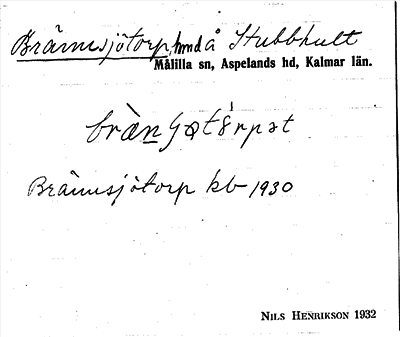 Brännsjötorp, hmd å Stubbhult
Målilla sn, Aspelands hd, Kalmar län.
Brännsjötorp kb 1930
NILS HENRIKSON 1932